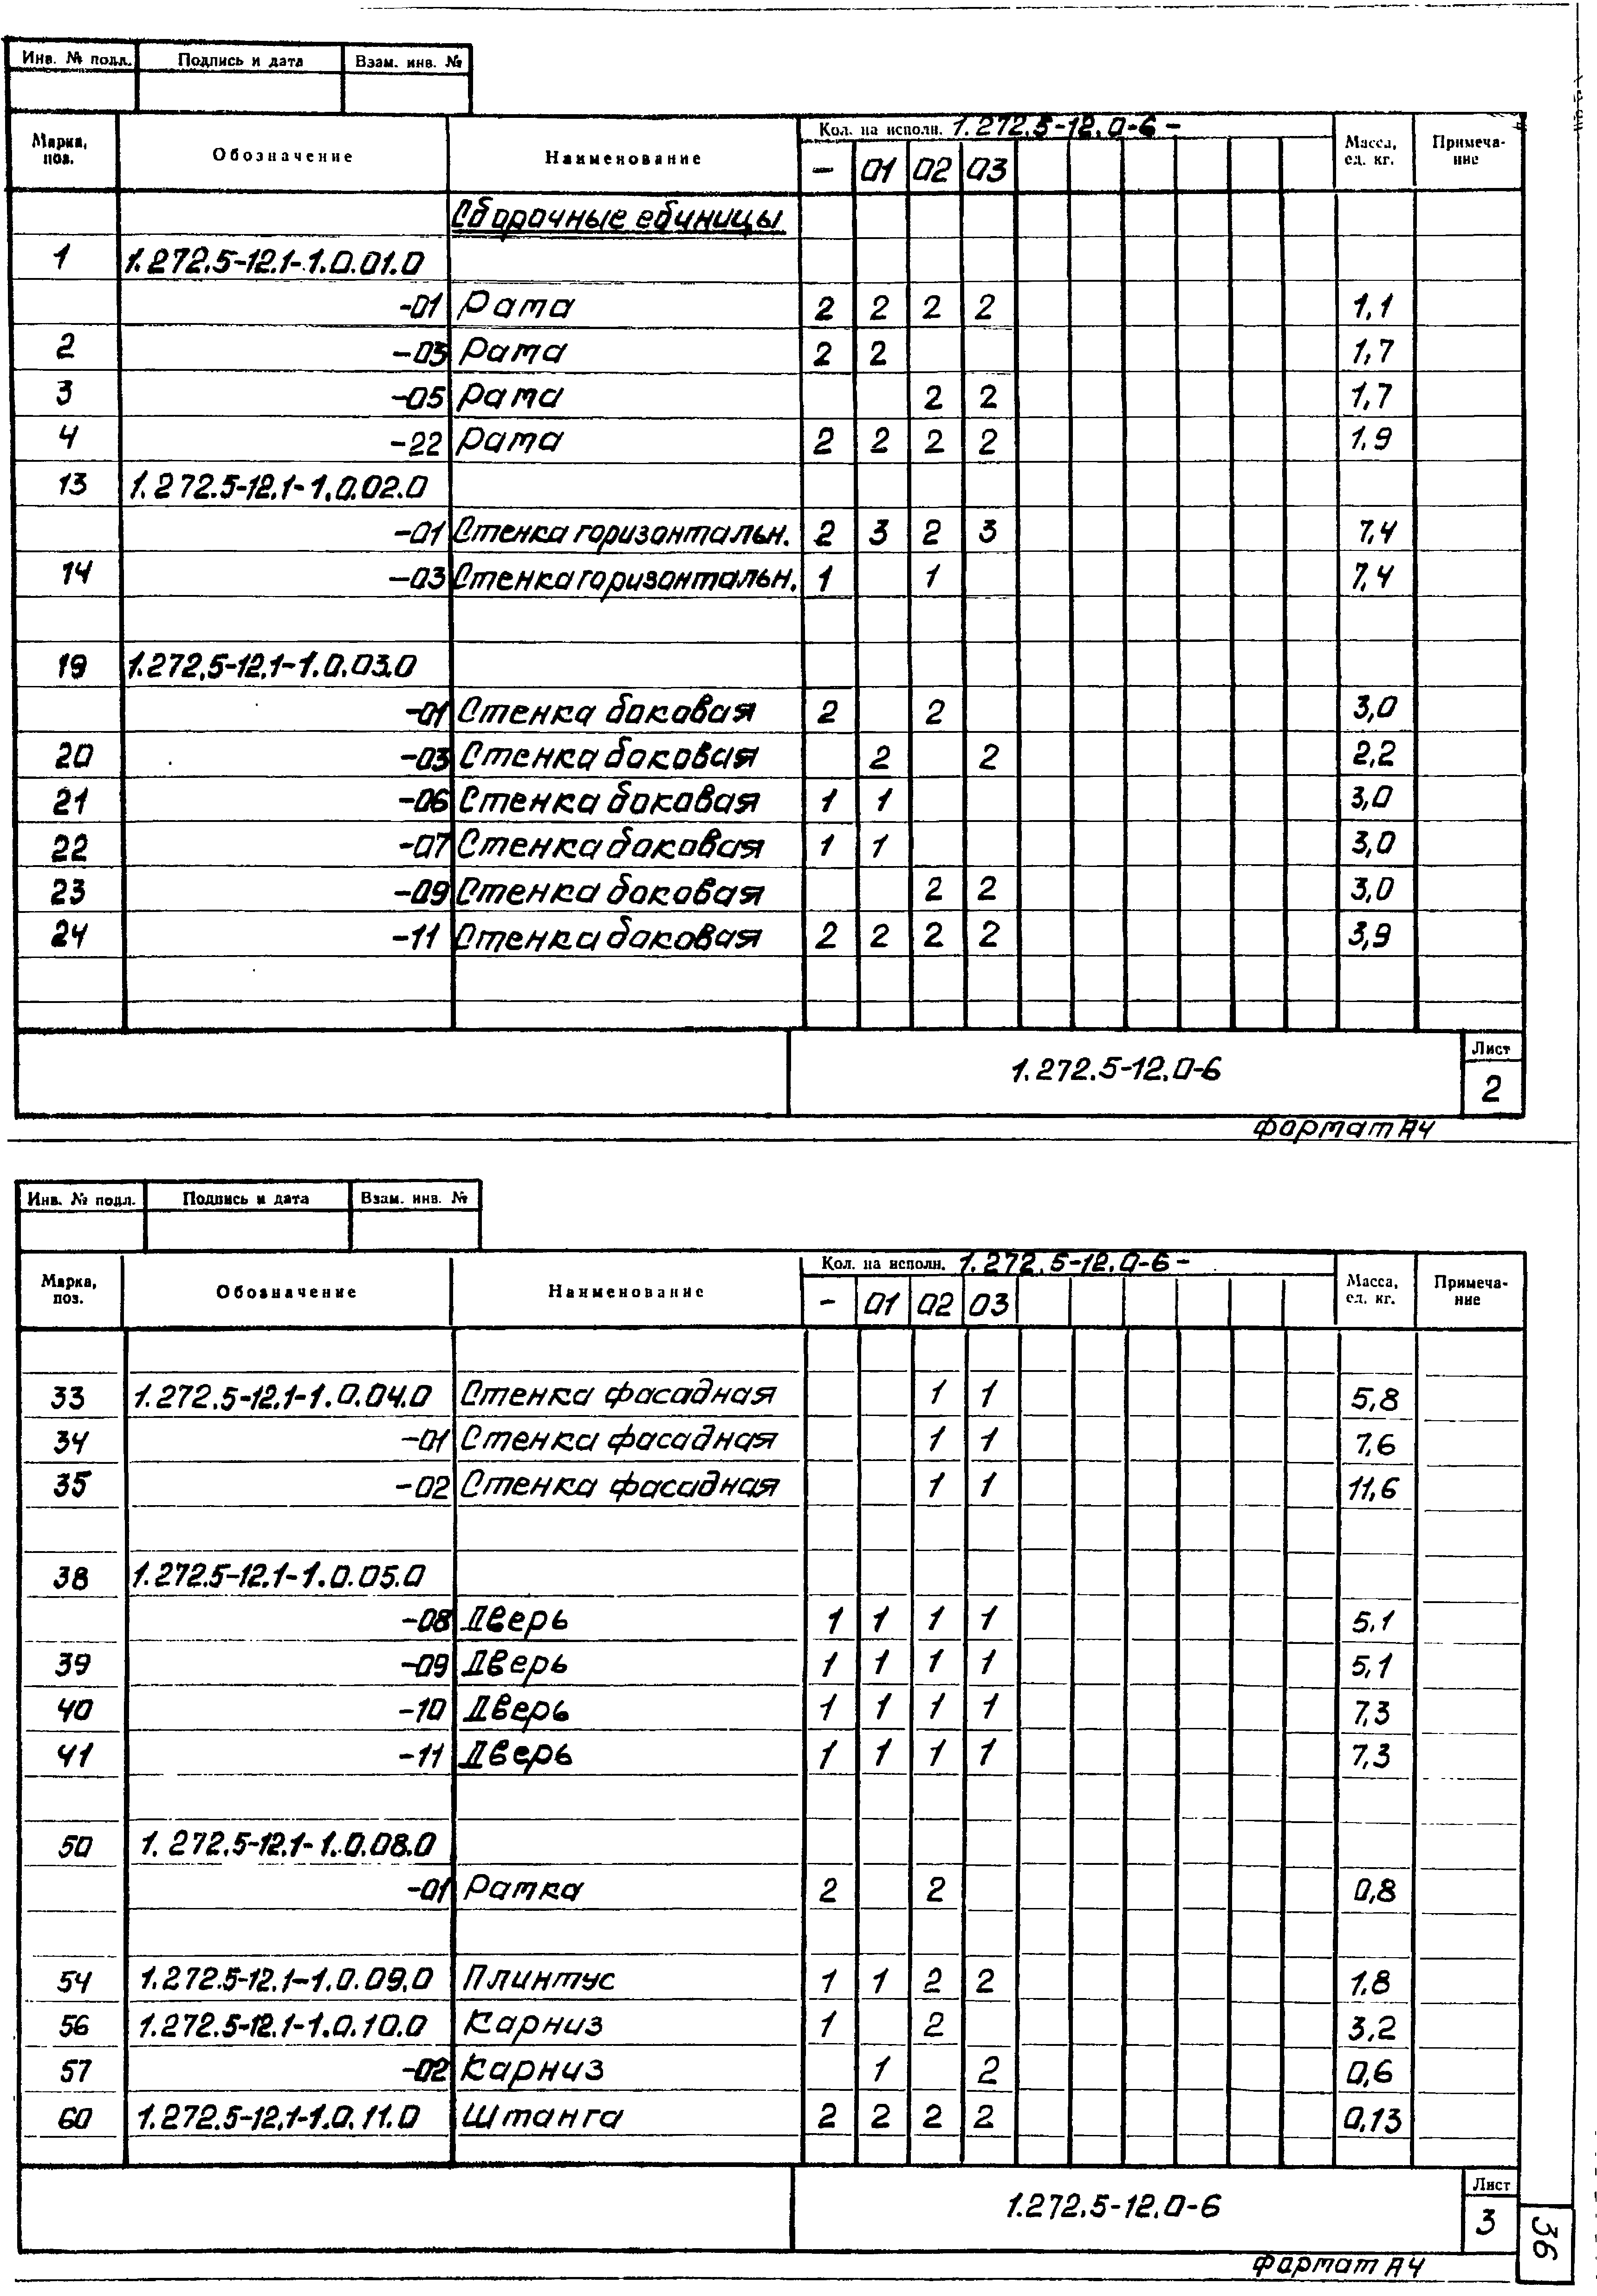 Инв. № подл. Подпись и дата Взам. инв. №
Марка, поз. Обозначение Наименование Кол. на исполн. 1.272.5-12.0-6- Масса, ед. кг. Примеча-ние
- 01 02 03
Сборочные единицы
1 1.272.5-12.1-1.0.01.0
-01 Рама 2 2 2 2 1,1
2 -03 Рама 2 2 1,7
3 -05 Рама 2 2 1,7
4 -22 Рама 2 2 2 2 1,9
13 1.272.5-12.1-1.0.02.0
-01 Стенка горизонтальн. 2 3 2 3 7,4
14 -03 Стенка горизонтальн. 1 1 7,4
19 1.272.5-12.1-1.0.03.0
-01 Стенка боковая 2 2 3,0
20 -03 Стенка боковая 2 2 2,2
21 -06 Стенка боковая 1 1 3,0
22 -07 Стенка боковая 1 1 3,0
23 -09 Стенка боковая 2 2 3,0
24 -11 Стенка боковая 2 2 2 2 3,9
1.272.5-12.0-6 Лист 2
формат А4
Инв. № подл. Подпись и дата Взам. инв. №
Марка, поз. Обозначение Наименование Кол. на исполн. 1.272.5-12.0-6- Масса, ед. кг. Примеча-ние
- 01 02 03
33 1.272.5-12.1-1.0.04.0 Стенка фасадная 1 1 5,8
34 -01 Стенка фасадная 1 1 7,6
35 -02 Стенка фасадная 1 1 11,6
38 1.272.5-12.1-1.0.05.0
-08 Дверь 1 1 1 1 5,1
39 -09 Дверь 1 1 1 1 5,1
40 -10 Дверь 1 1 1 1 7,3
41 -11 Дверь 1 1 1 1 7,3
50 1.272.5-12.1-1.0.08.0
-01 Рамка 2 2 0,8
54 1.272.5-12.1-1.0.09.0 Плинтус 1 1 2 2 1,8
56 1.272.5-12.1-1.0.10.0 Карниз 1 2 3,2
57 -02 Карниз 1 2 0,6
60 1.272.5-12.1-1.0.11.0 Штанга 2 2 2 2 0,13
1.272.5-12.0-6 Лист 3
формат А4
36